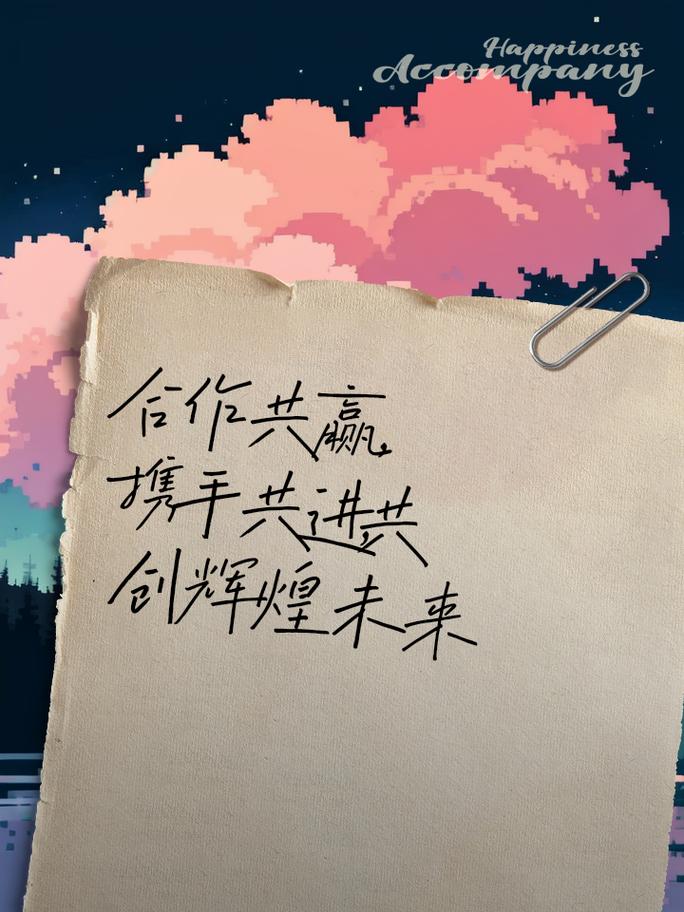 Happiness
Accompany
合作共赢,
携手共进,共
创辉煌未来